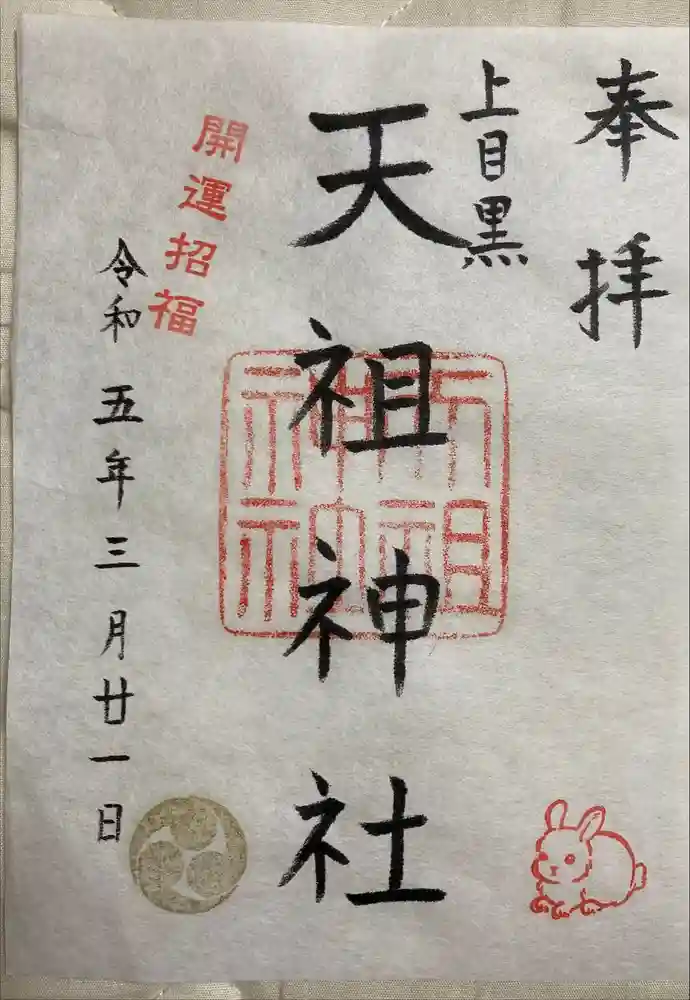 奉拝
上目黒
天祖神社
開運招福
令和五年三月廿一日